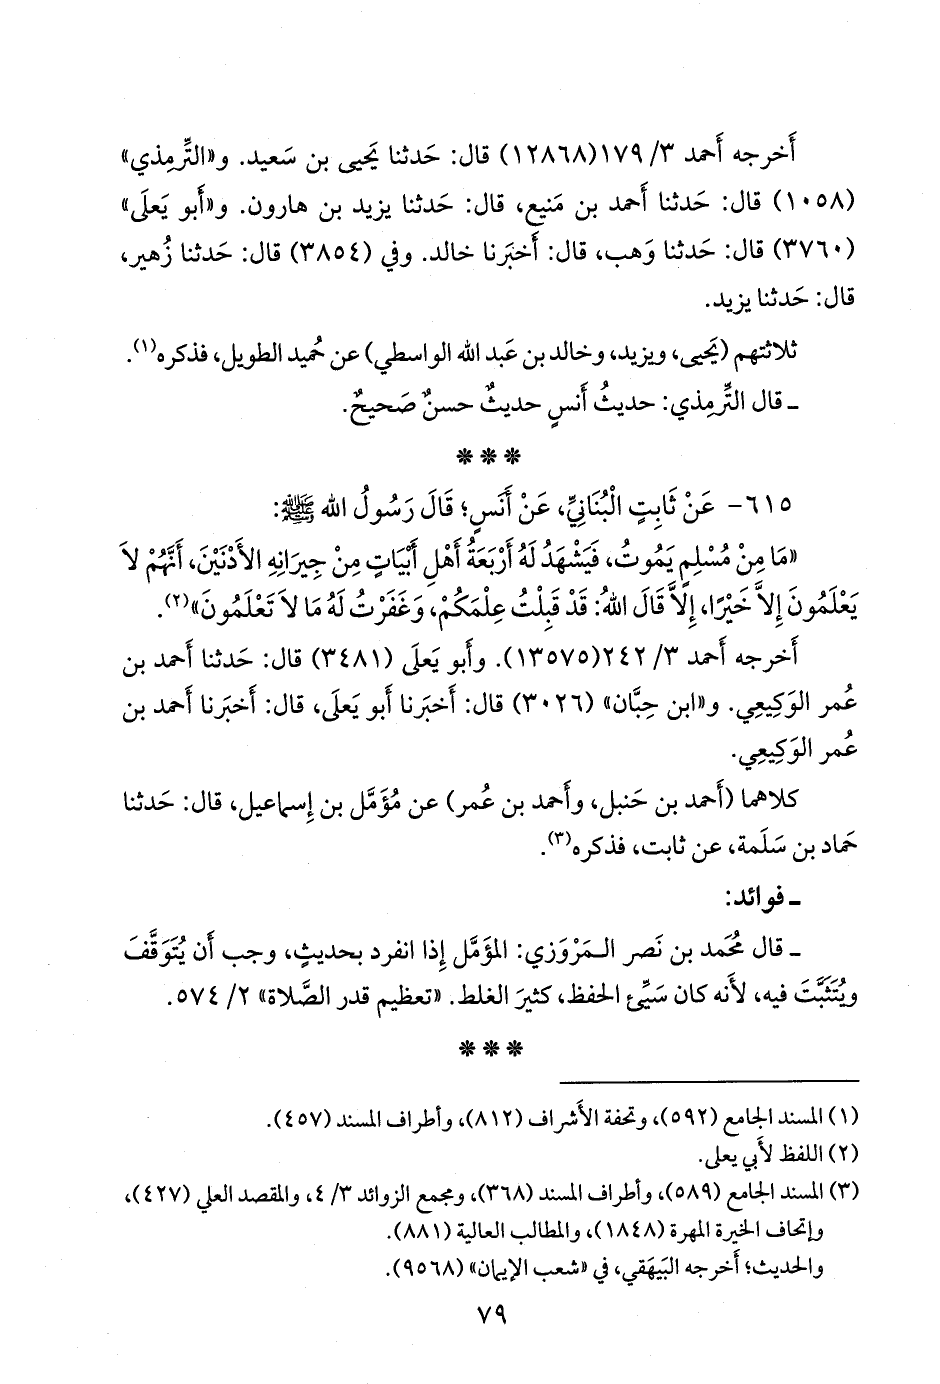 أَخرجه أَحمد ٣/ ١٧٩(١٢٨٦٨) قال: حَدثنا يَحيى بن سَعيد. و«التِّرمِذي»
(١٠٥٨) قال: حَدثنا أَحمد بن مَنيع، قال: حَدثنا يزيد بن هارون. و«أَبو يَعلَى»
(٣٧٦٠) قال: حَدثنا وَهب، قال: أَخبَرنا خالد. وفي (٣٨٥٤) قال: حَدثنا زُهير،
قال: حَدثنا يزيد.
ثلاثتهم (يَحيى، ويزيد، وخالد بن عَبد الله الواسطي) عن حُميد الطويل، فذكره(١).
ـ قال التِّرمِذي: حديثُ أَنسٍ حديثٌ حسنٌ صَحيحٌ.
* * *
٦١٥- عَنْ ثَابِتٍ الْبُنَانِيِّ، عَنْ أَنَسٍ؛ قَالَ رَسُولُ الله ﷺ:
«مَا مِنْ مُسْلِمٍ يَمُوتُ، فَيَشْهَدُ لَهُ أَرْبَعَةُ أَهْلِ أَبْيَاتٍ مِنْ جِيرَانِهِ الأَدْنَيْنَ، أَنَّهُمْ لاَ
يَعْلَمُونَ إِلاَّ خَيْرًا، إِلاَّ قَالَ اللهُ: قَدْ قَبِلْتُ عِلْمَكُمْ، وَغَفَرْتُ لَهُ مَا لاَ تَعْلَمُونَ»(٢).
أَخرجه أَحمد ٣/ ٢٤٢(١٣٥٧٥). وأَبو يَعلَى (٣٤٨١) قال: حَدثنا أَحمد بن
عُمر الوَكِيعِي. و«ابن حِبَّان» (٣٠٢٦) قال: أَخبَرنا أَبو يَعلَى، قال: أَخبَرنا أَحمد بن
عُمر الوَكِيعِي.
كلاهما (أَحمد بن حَنبل، وأَحمد بن عُمر) عن مُؤَمَّل بن إِسماعيل، قال: حَدثنا
حَماد بن سَلَمة، عن ثابت، فذكره(٣).
ـ فوائد:
ـ قال مُحَمد بن نَصر الـمَرْوَزي: المؤَمَّل إِذا انفرد بحديثٍ، وجب أَن يُتَوَقَّفَ
ويُتَثَبَّتَ فيه، لأَنه كان سَيِّئ الحفظ، كثيرَ الغلط. «تعظيم قدر الصَّلاة» ٢/ ٥٧٤.
* * *
(١) المسند الجامع (٥٩٢)، وتحفة الأَشراف (٨١٢)، وأطراف المسند (٤٥٧).
(٢) اللفظ لأَبي يعلى.
(٣) المسند الجامع (٥٨٩)، وأطراف المسند (٣٦٨)، ومجمع الزوائد ٣/ ٤، والمقصد العلي (٤٢٧)،
وإتحاف الخيرة المهرة (١٨٤٨)، والمطالب العالية (٨٨١).
والحديث؛ أَخرجه البَيهَقي، في «شعب الإيمان» (٩٥٦٨).
٧٩